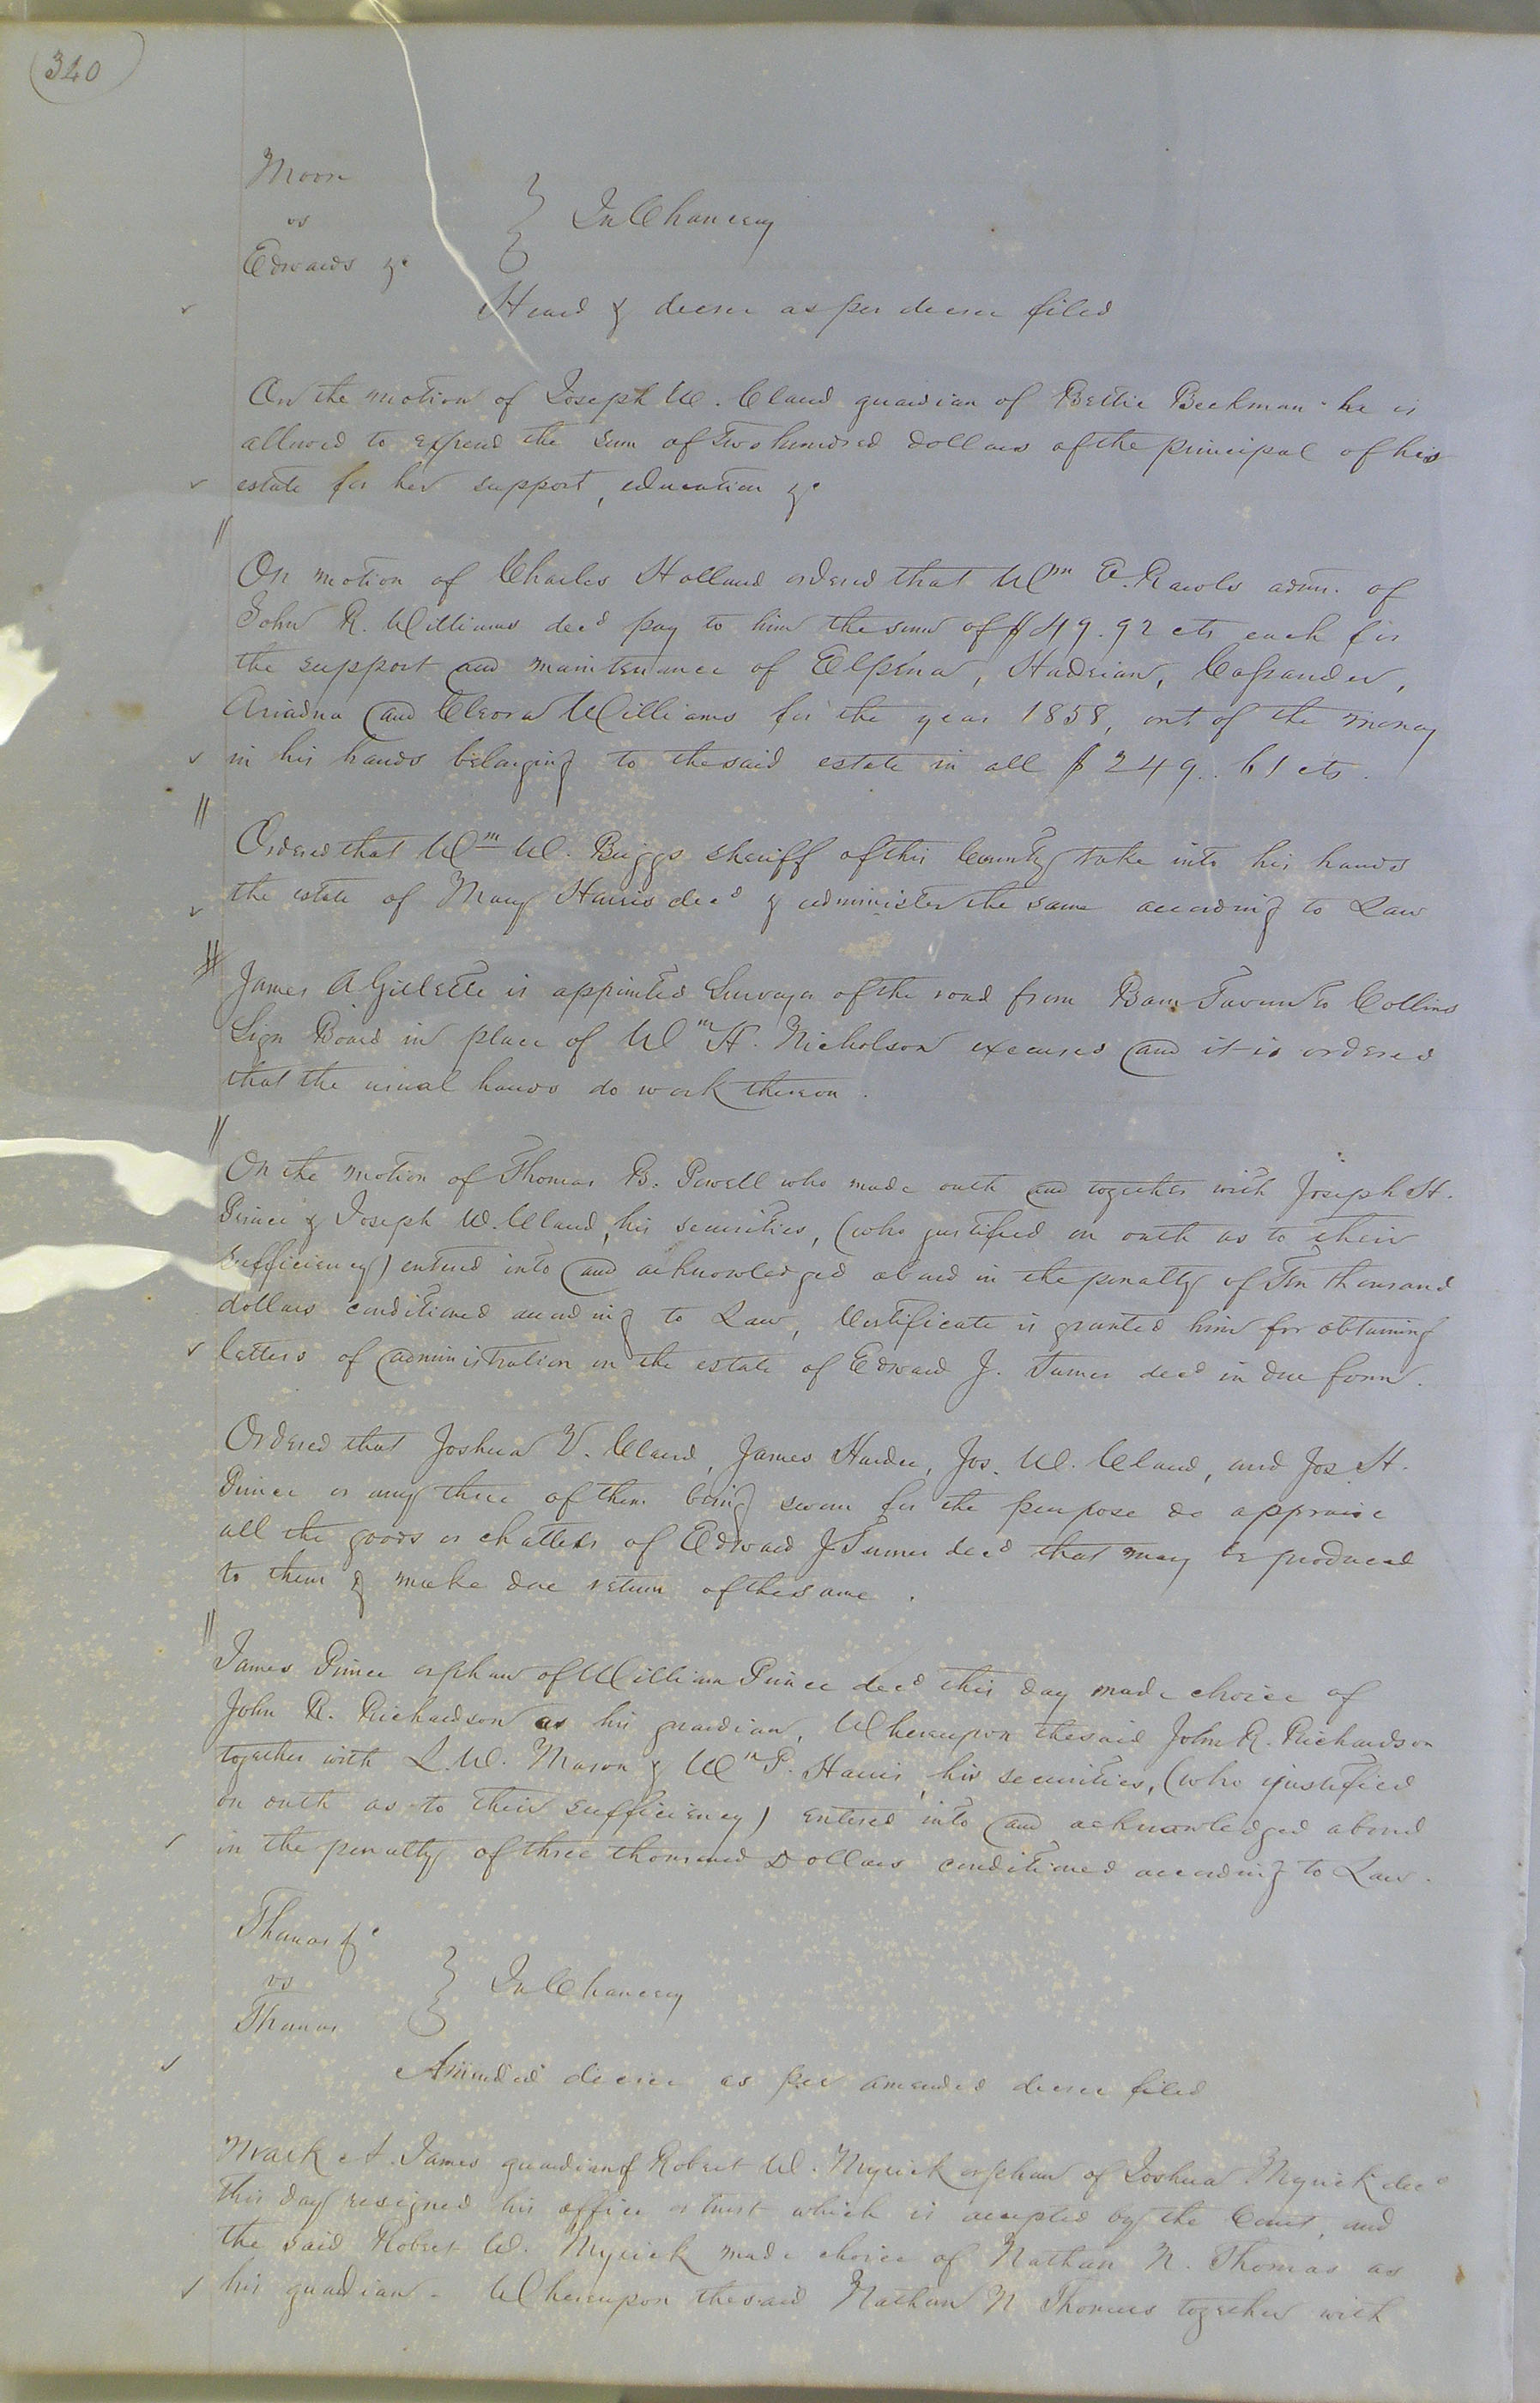 340
Moore
vs
Edwards &c
In Chancery
Heard & decree as per decree filed
On the motion of Joseph W. Claud guardian of Bettie Beekman he is
allowed to expend the sum of Two hundred dollars of the principal of his
estate for her support, education &c
On motion of Charles Holland ordered that Wm E. Rawls admr. of
John R. Williams decd pay to him the sum of $49.92 cts each for
the support and maintenance of Elpena, Hadrian, Cassander,
Ariadna and Cleora Williams for the year 1858, out of the money
in his hands belonging to the said estate in all $249..61 cts.
Ordered that Wm W. Briggs sheriff of this County take into his hands
the estate of Mary Harris decd & administer the same according to Law
James A Gillette is appointed Surveyor of the road from Barn Tavern to Collins
Sign Board in place of Wm H. Nicholson excused and it is ordered
that the usual hands do work thereon.
On the motion of Thomas B. Powell who made oath and together with Joseph H.
Prince & Joseph W. Claud, his securities, (who justified on oath as to their
sufficiency) entered into and acknowledged a bond in the penalty of Ten thousand
dollars conditioned according to Law, Certificate is granted him for obtaining
letters of administration on the estate of Edward J. Turner decd in due form.
Ordered that Joshua V. Claud, James Hardee, Jos. W. Claud, and Jos H.
Prince or any three of them being sworn for the purpose do appraise
all the goods or chattels of Edward J Turner decd that may be produced
to them & make due return of the same.
James Prince orphan of William Prince decd this day made choice of
John R. Richardson as his guardian, Whereupon the said John R. Richardson
together with L. W. Mason & Wm P. Harris, his securities, (who justified
on oath as to their sufficiency) entered into and acknowledged a bond
in the penalty of three thousand Dollars conditioned according to Law.
Thomas &c
vs
Thomas
In Chancery
Amended decree as per amended decree filed
Mark A. James guardian of Robert W. Myrick orphan of Joshua Myrick decd
this day resigned his office or trust which is accepted by the Court, and
the said Robert W. Myrick made choice of Nathan N. Thomas as
his guardian - Whereupon the said Nathan N Thomas together with